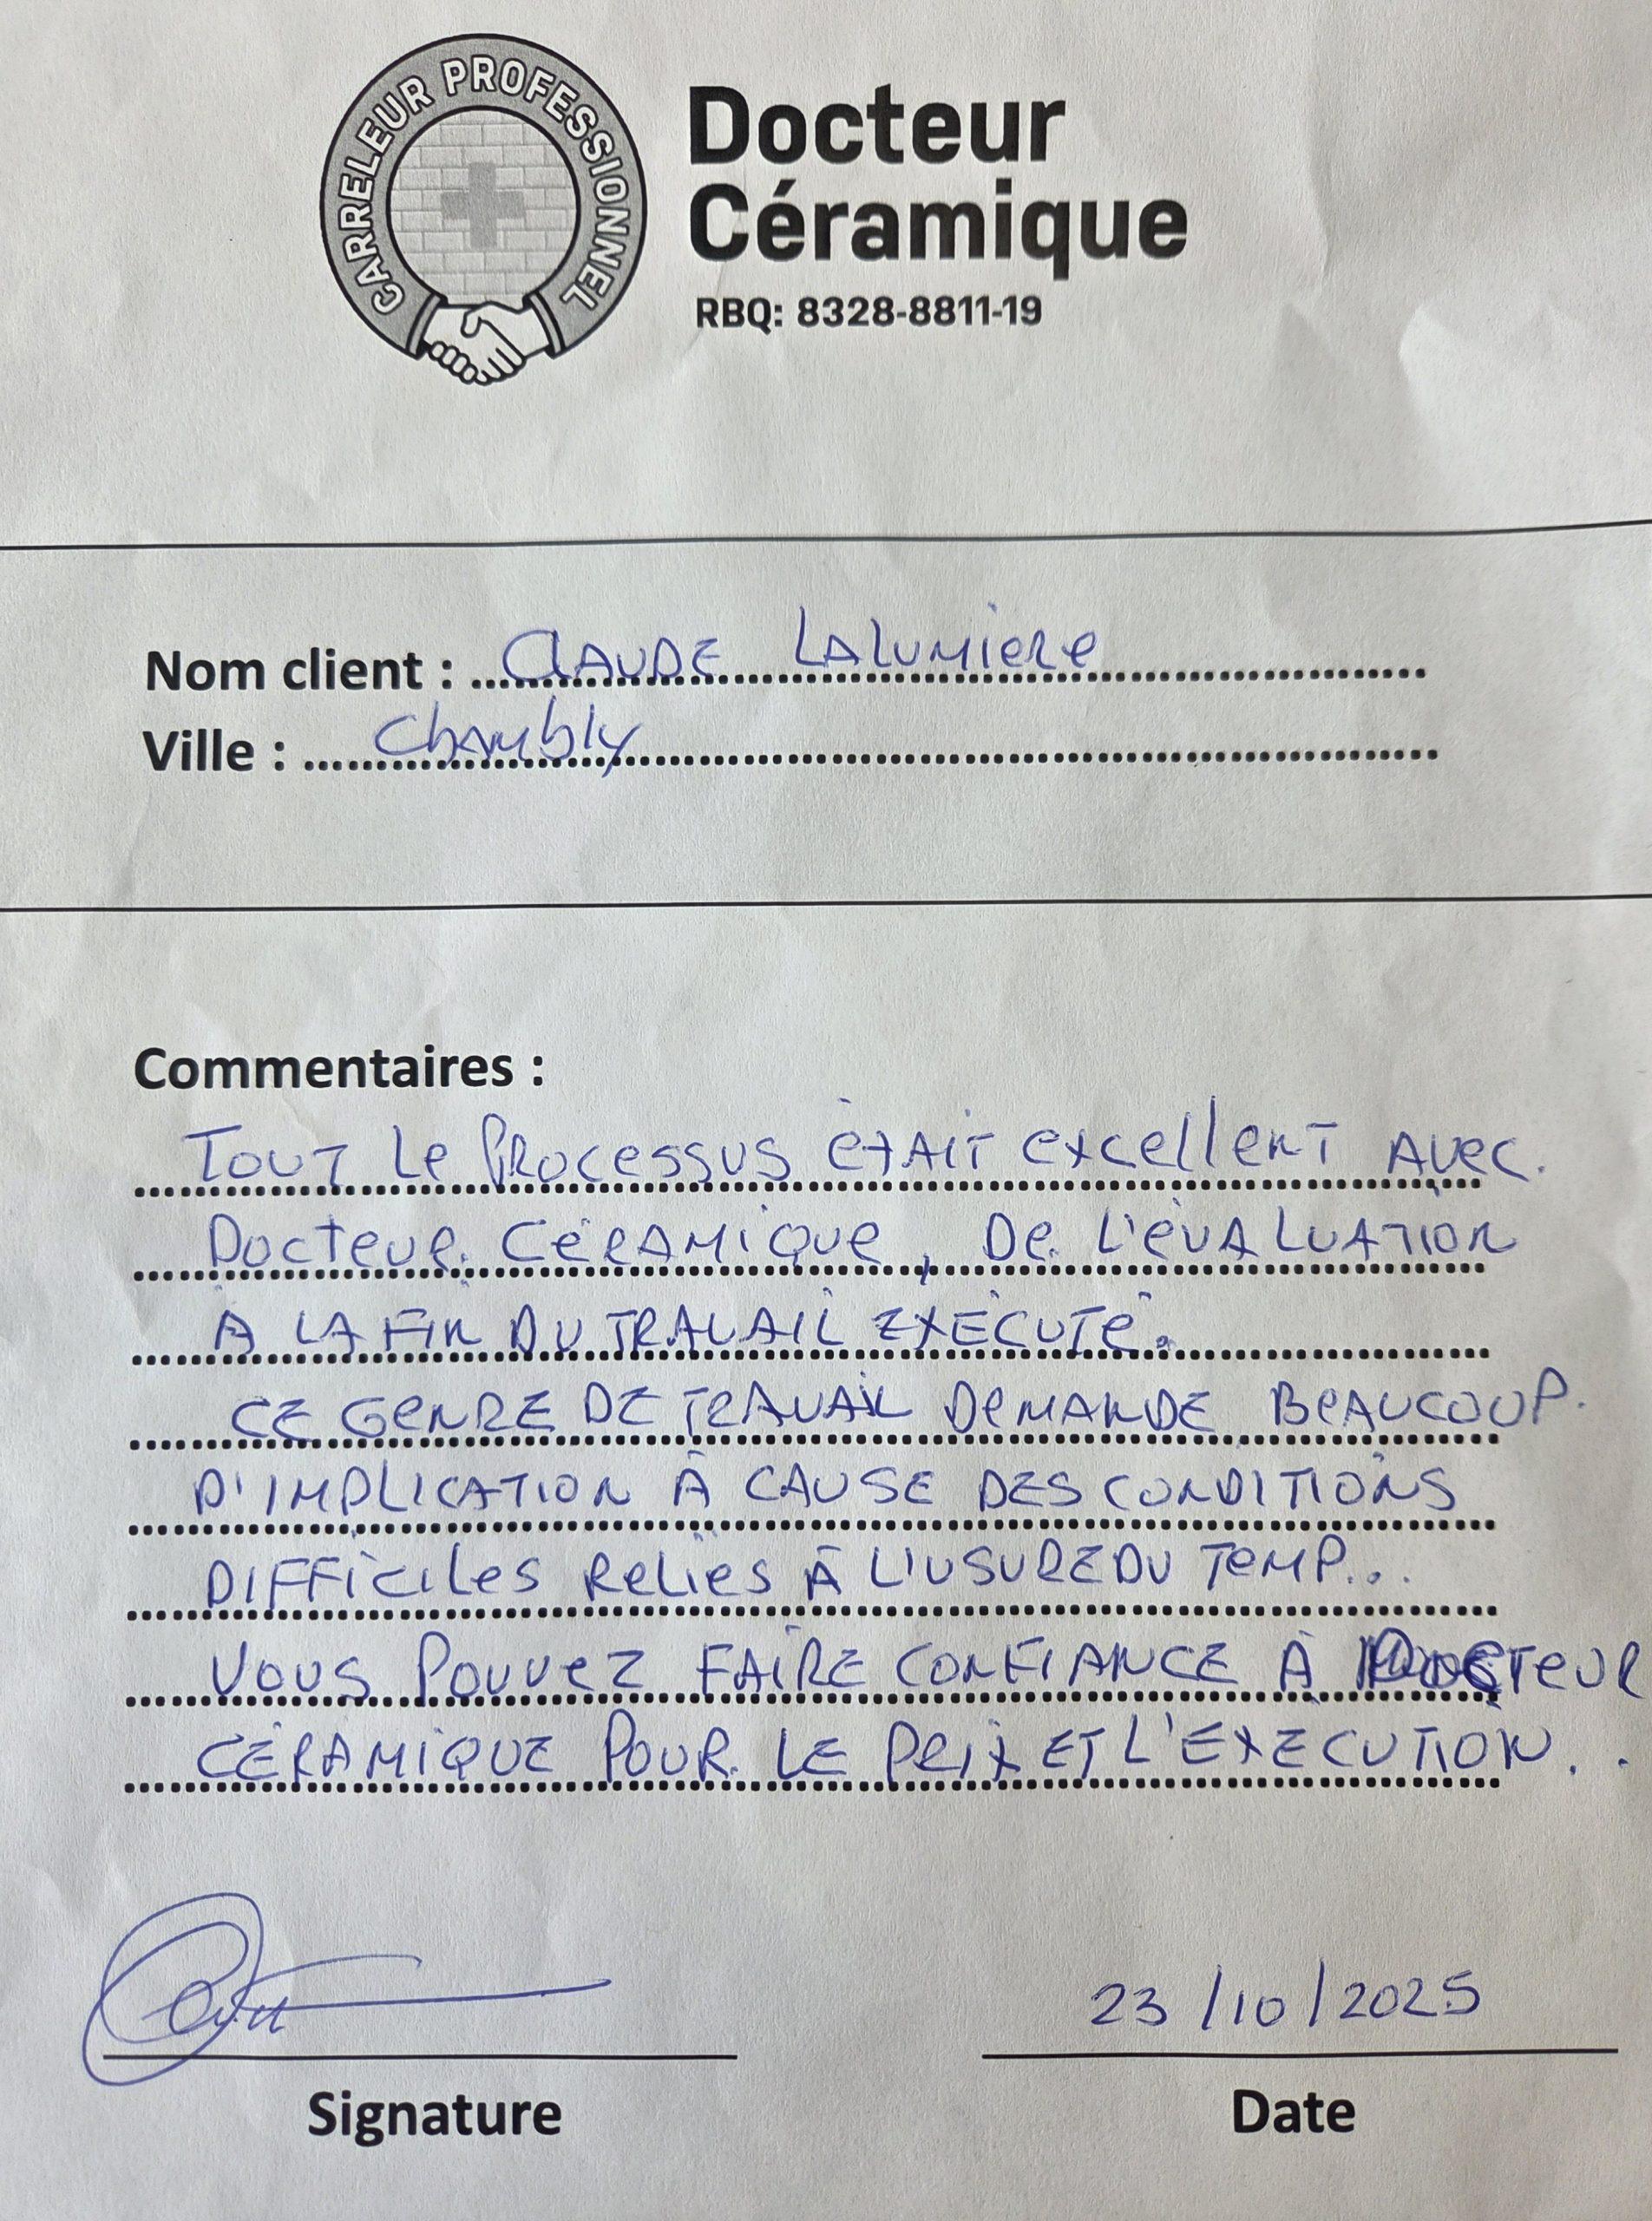 CARRELEUR PROFESSIONNEL
Docteur
Céramique
RBQ: 8328-8811-19
Nom client : CLAUDE LALUMIERE
Ville : Chambly
Commentaires :
TOUT LE PROCESSUS ÉTAIT EXCELLENT AVEC
DOCTEUR CÉRAMIQUE, DE L'ÉVALUATION
À LA FIN DU TRAVAIL EXÉCUTÉ.
CE GENRE DE TRAVAIL DEMANDE BEAUCOUP
D'IMPLICATION À CAUSE DES CONDITIONS
DIFFICILES RELIÉS À L'USURE DU TEMP...
VOUS POUVEZ FAIRE CONFIANCE À DOCTEUR
CÉRAMIQUE POUR LE PRIX ET L'EXÉCUTION..
23/10/2025
Signature Date